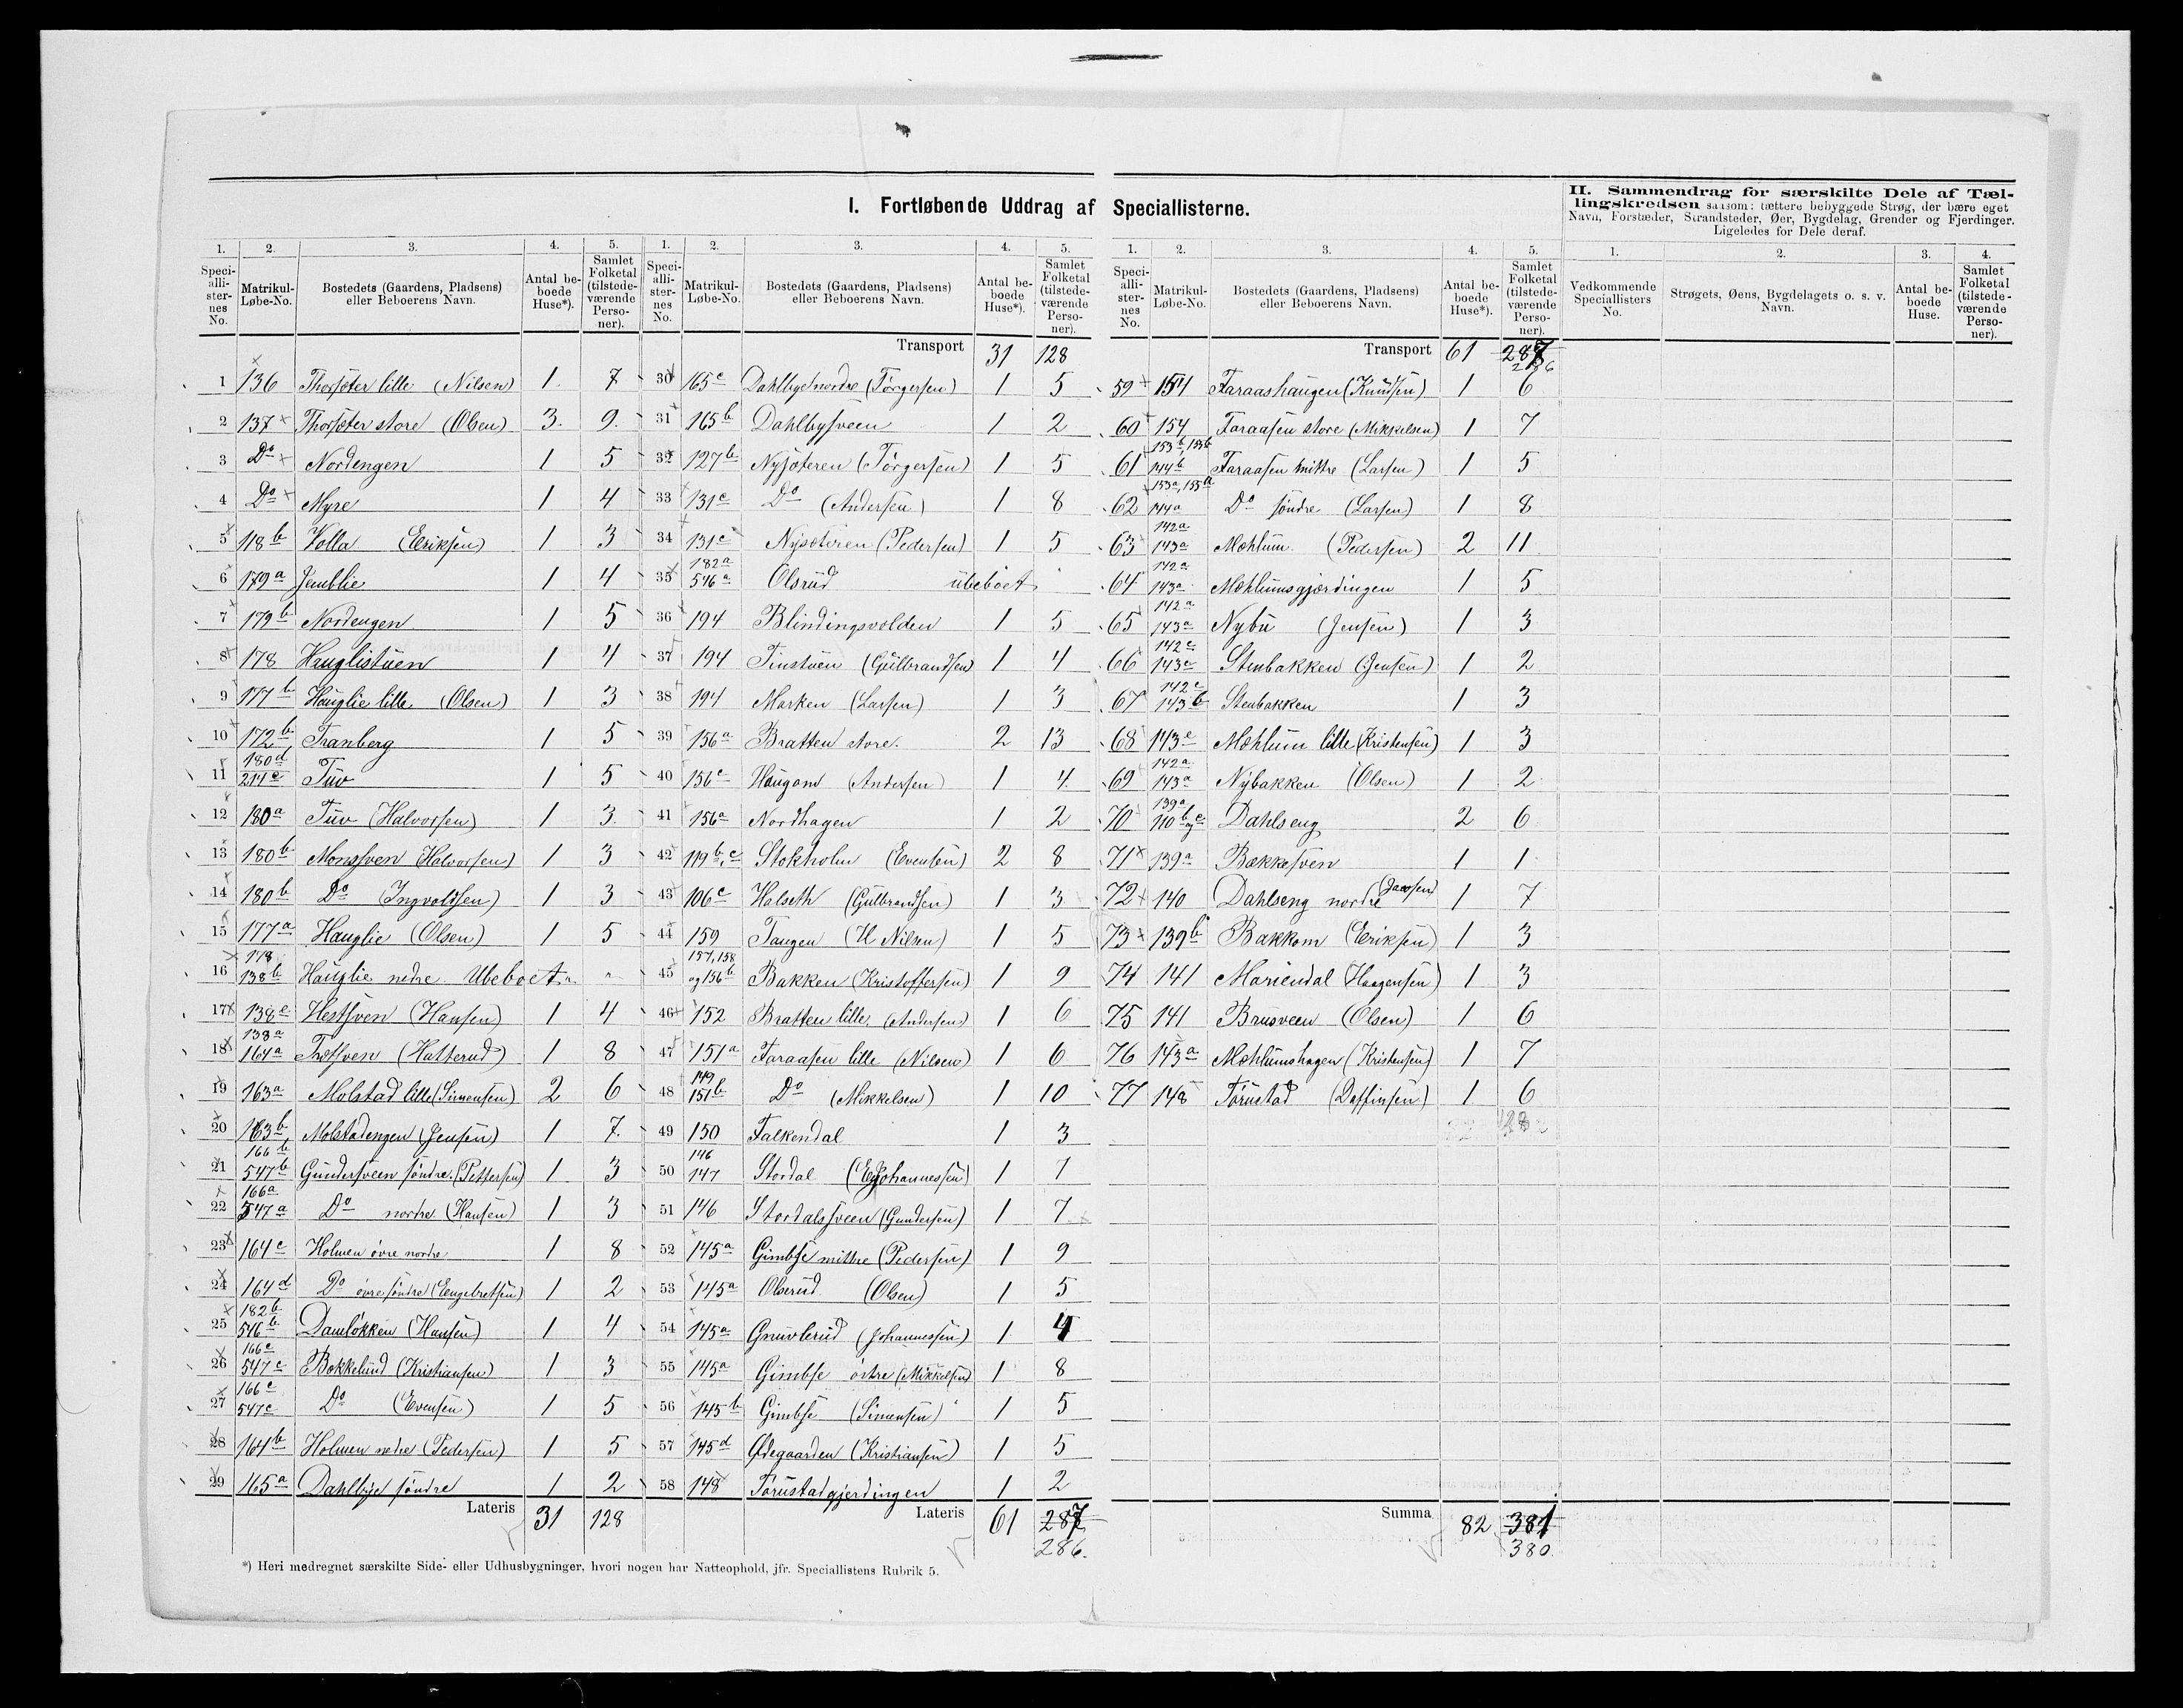 I. Fortløbende Uddrag af Speciallisterne.
II. Sammendrag for særskilte Dele af Tæl-
lingskredsen saasom: tættere bebyggede Strøg, der bære eget
Navn, Forstæder, Strandsteder, Øer, Bygdelag, Grender og Fjerdinger.
Ligeledes for Dele deraf.
1. 2. 3. 4. 5.
Speciallisternes No. Matrikul-Løbe-No. Bostedets (Gaardens, Pladsens) eller Beboerens Navn. Antal beboede Huse*). Samlet Folketal (tilstedeværende Personer).
1 136 Thorsøter lille (Nilsen) 1 7
2 137 Thorsøter store (Olsen) 3. 9.
3 Do Nordengen 1 5
4 Do Myre 1 4
5 118b Volla (Eriksen) 1 3
6 179a Jemblie 1 4
7 179b Nordengen 1 5
8 178 Hauglistuen 1 4
9 177b Hauglie lille (Olsen) 1 3
10 172b Tranberg 1 5
11 180d 214c Tuv 1 5
12 180a Tuv (Halvorsen) 1 3.
13 180b Monssven (Halvorsen) 1 3
14 180b Do (Ingvoldsen) 1 3
15 177a Hauglie (Olsen) 1 5
16 178 138b Hauglie nedre Ubeboet
17 138c Hestsven (Hansen) 1 4
18 138a 164a Træsven (Hatterud) 1 8
19 163a Molstad lille (Simensen) 2 6
20 163b Molstadengen (Jensen) 1 7.
21 166b 547b Gundersveen søndre (Pettersen) 1 3
22 166a 547a Do nordre (Hansen) 1 3
23 164c Holmen øvre nordre 1 8
24 164d Do øvre søndre (Engebretsen) 1 2
25 182b 546b Damløkken (Hansen) 1 4
26 166c 547c Bækkelund (Kristiansen) 1 3
27 166c 547c Do (Evensen) 1 5
28 164b Holmen nedre (Pedersen) 1 5
29 165a Dahlbye søndre 1 2
Lateris 31 128
1. 2. 3. 4. 5.
Speciallisternes No. Matrikul-Løbe-No. Bostedets (Gaardens, Pladsens) eller Beboerens Navn. Antal beboede Huse*). Samlet Folketal (tilstedeværende Personer).
Transport 31 128
30 165c Dahlbye nordre (Torgersen) 1 5
31 165b Dahlbysveen 1 2
32 127b Nysøteren (Torgersen) 1 5
33 131c Do (Andersen) 1 8
34 131c Nysøteren (Pedersen) 1 5
35 182a 546a Olsrud ubeboet
36 194 Blindingsvolden 1 5
37 194 Tinstuen (Gulbrandsen) 1 4
38 194 Marken (Larsen) 1 3
39 156a Bratten store. 2 13
40 156c Haugom (Andersen) 1 4.
41 156a Nordhagen 1 2
42 119b,c Stokholm (Evensen) 2 8
43 106c Halseth (Gulbrandsen) 1 3
44 159 Taugen (H Nilsen) 1 5
45 157, 158 og 156b Bakken (Kristoffersen) 1 9
46 152 Bratten lille (Andersen) 1 6
47 151a Faraasen lille (Nilsen) 1 6
48 149 151b Do (Mikkelsen) 1 10
49 150 Falkendal 1 3
50 146 147 Stordal (Johannessen) 1 7
51 146 Stordalsveen (Gundersen) 1 7
52 145a Gimbse mittre (Pedersen) 1 9
53 145a Olserud (Olsen) 1 5
54 145a Gnuvlerud (Johannessen) 1 4
55 145a Gimbse østre (Mikkelsen) 1 8
56 145b Gimbse (Simensen) 1 5
57 145d Ødegaarden (Kristiansen) 1 5
58 148 Forustadgjerdingen 1 2
Lateris 61 287
286.
1. 2. 3. 4. 5.
Speciallisternes No. Matrikul-Løbe-No. Bostedets (Gaardens, Pladsens) eller Beboerens Navn. Antal beboede Huse*). Samlet Folketal (tilstedeværende Personer).
Transport 61 287
286
59 154 Faraashaugen (Knudsen) 1 6
60 154 Faraasen store (Mikkelsen) 1 7
61 153b, 155b 144b Faraasen mittre (Larsen) 1 5
62 153a, 155a 144a Do søndre (Larsen) 1 8
63 142a 143a Mæhlum (Pedersen) 2 11
64 142a 143a Mæhlumsgjærdingen 1 5
65 142a 143a Nybu (Jensen) 1 3
66 142c 143c Stenbakken (Jensen) 1 2
67 142c 143b Stenbakken 1 3
68 143e Mæhlum lille (Kristensen) 1 3
69 142a 143a Nybakken (Olsen) 1 2
70 139a 110b og c Dahlseng 2 6
71 139a Bækkesven 1 1
72 140 Dahlseng nordre 1 7
73 139b Bakkom (Eriksen) 1 3
74 141 Mariendal (Haagensen) 1 3
75 141 Brusveen (Olsen) 1 6
76 143a Mæhlumshagen (Kristensen) 1 7
77 148 Forustad (Daffinsen) 1 6
Summa 82 381
380.
1. 2. 3. 4.
Vedkommende Speciallisters No. Strøgets, Øens, Bygdelagets o. s. v. Navn. Antal beboede Huse. Samlet Folketal (tilstedeværende Personer).
*) Heri medregnet særskilte Side- eller Udhusbygninger, hvori nogen har Natteophold, jfr. Speciallistens Rubrik 5.